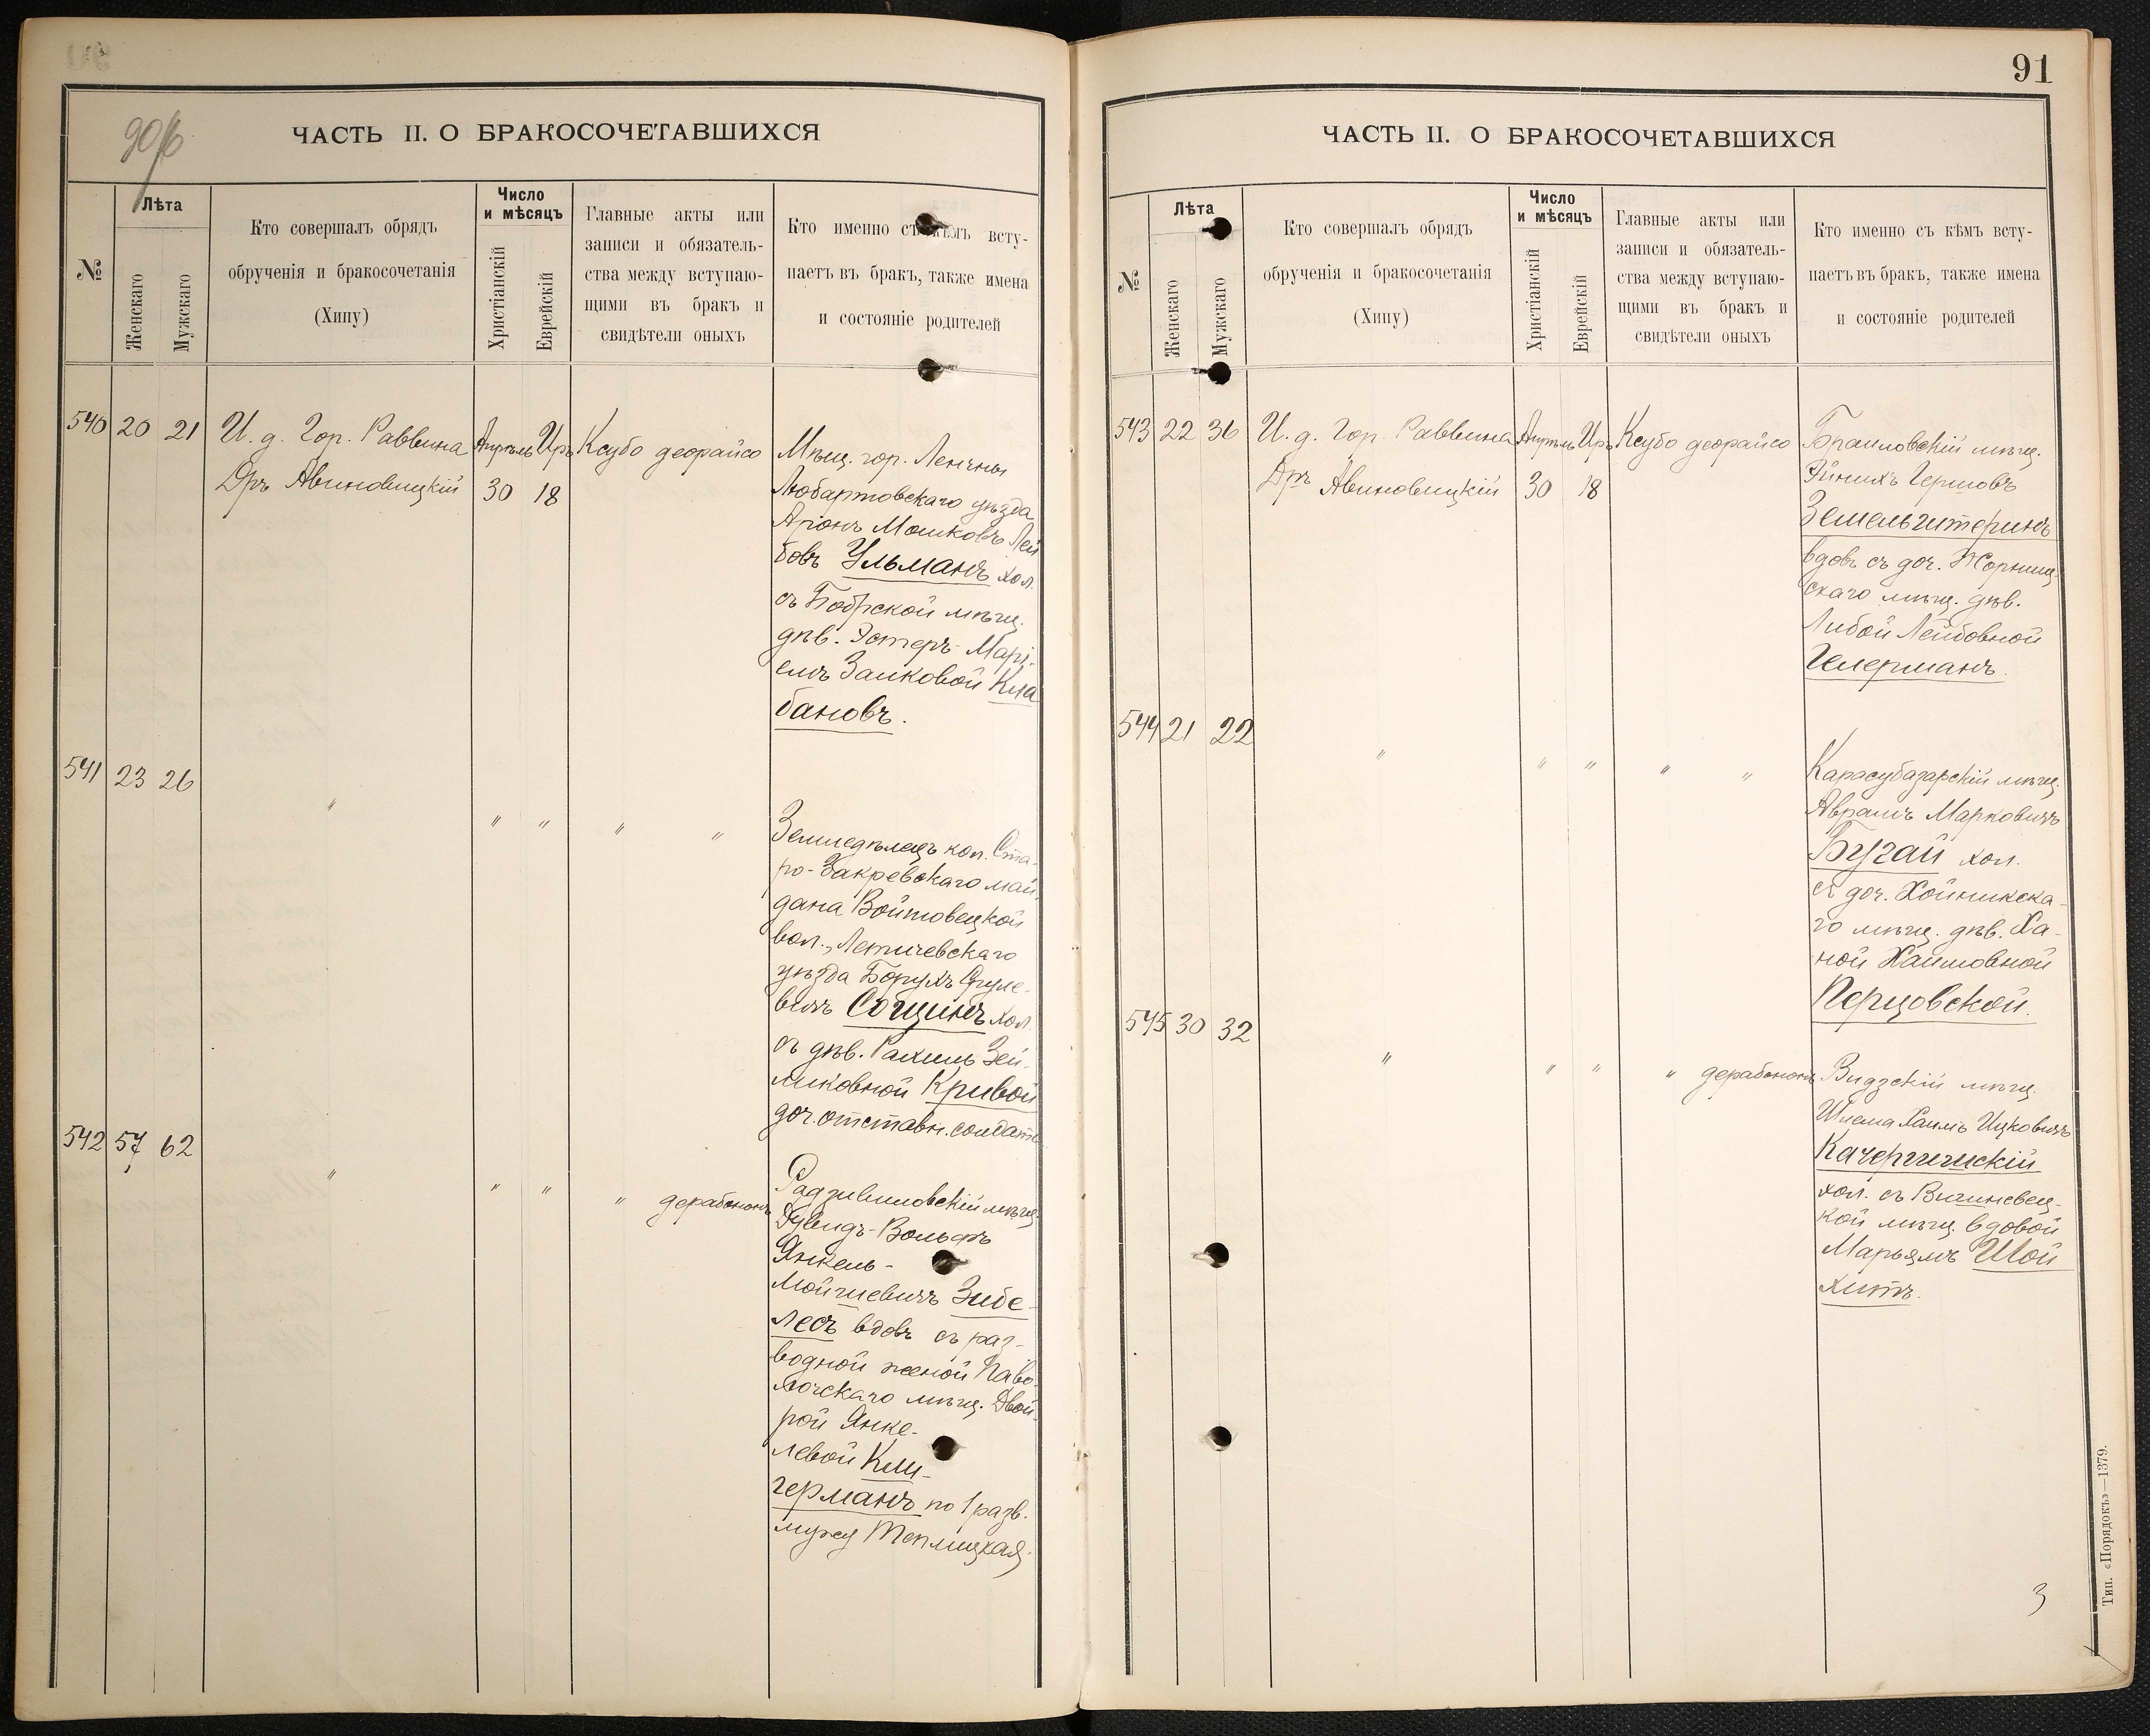 90/б
ЧАСТЬ II. О БРАКОСОЧЕТАВШИХСЯ
№
Лѣта
Женскаго
Мужскаго
Кто совершалъ обрядъ
обрученія и бракосочетанія
(Хипу)
Число
и мѣсяцъ
Христіанскій
Еврейскій
Главные акты или
записи и обязатель-
ства между вступаю-
щими въ бракъ и
свидѣтели оныхъ
Кто именно съ кѣмъ всту-
паетъ въ бракъ, также имена
и состояніе родителей
540 20 21 И. д. Гор. Раввина Апрѣль Иръ Ксубо деорайсо
Дръ Авиновицкій 30 18
Мѣщ. гор. Ленчны
Любартовскаго уѣзда
Аріонъ Мошковъ Лей
бовъ Ульманъ хол.
съ Бобрской мѣщ.
дѣв. Эстеръ-Марі-
емъ Заиковой Кла
бановъ.
541 23 26 " " " " "
Земледѣлецъ кол. Ста-
ро-Закревскаго май-
дана Войтовецкой
вол., Летичевскаго
уѣзда Борухъ Сруле-
вичъ Сощинъ хол.
съ дѣв. Рахиль Зей-
ликовной Кривой
доч. отставн. солдата
542 57 62 " " " " дерабононъ
Радзивиловскій мѣщ.
Дувидъ-Вольфъ
Янкель-
Мойшевичъ Зибе-
лесъ вдовъ съ раз-
водной женой Паво-
лочскаго мѣщ. Двой-
рой Янке-
левой Кли-
германъ по 1 разв.
мужу Теплицкая.
91
ЧАСТЬ II. О БРАКОСОЧЕТАВШИХСЯ
№
Лѣта
Женскаго
Мужскаго
Кто совершалъ обрядъ
обрученія и бракосочетанія
(Хипу)
Число
и мѣсяцъ
Христіанскій
Еврейскій
Главные акты или
записи и обязатель-
ства между вступаю-
щими въ бракъ и
свидѣтели оныхъ
Кто именно съ кѣмъ всту-
паетъ въ бракъ, также имена
и состояніе родителей
543 22 36 И. д. Гор. Раввина Апрѣль Иръ Ксубо деорайсо
Дръ Авиновицкій 30 18
Браиловскій мѣщ.
Эйнихъ Гершовъ
Земельштернъ
вдовъ съ доч. Жорнищ-
скаго мѣщ. дѣв.
Либой Лейбовной
Гелерманъ.
544 21 22 " " " " "
Карасубазарскій мѣщ.
Аврамъ Марковичъ
Бугай хол.
съ доч. Хойникска-
го мѣщ. дѣв. Ха-
ной Хаимовной
Перцовской.
545 30 32 " " " " дерабононъ
Видзскій мѣщ.
Шлема Хаимъ Ицковичъ
Качергинскій
хол. съ Вишневец-
кой мѣщ. вдовой
Марьямъ Шой
хитъ.
3
Тип. «Порядокъ»—1379.